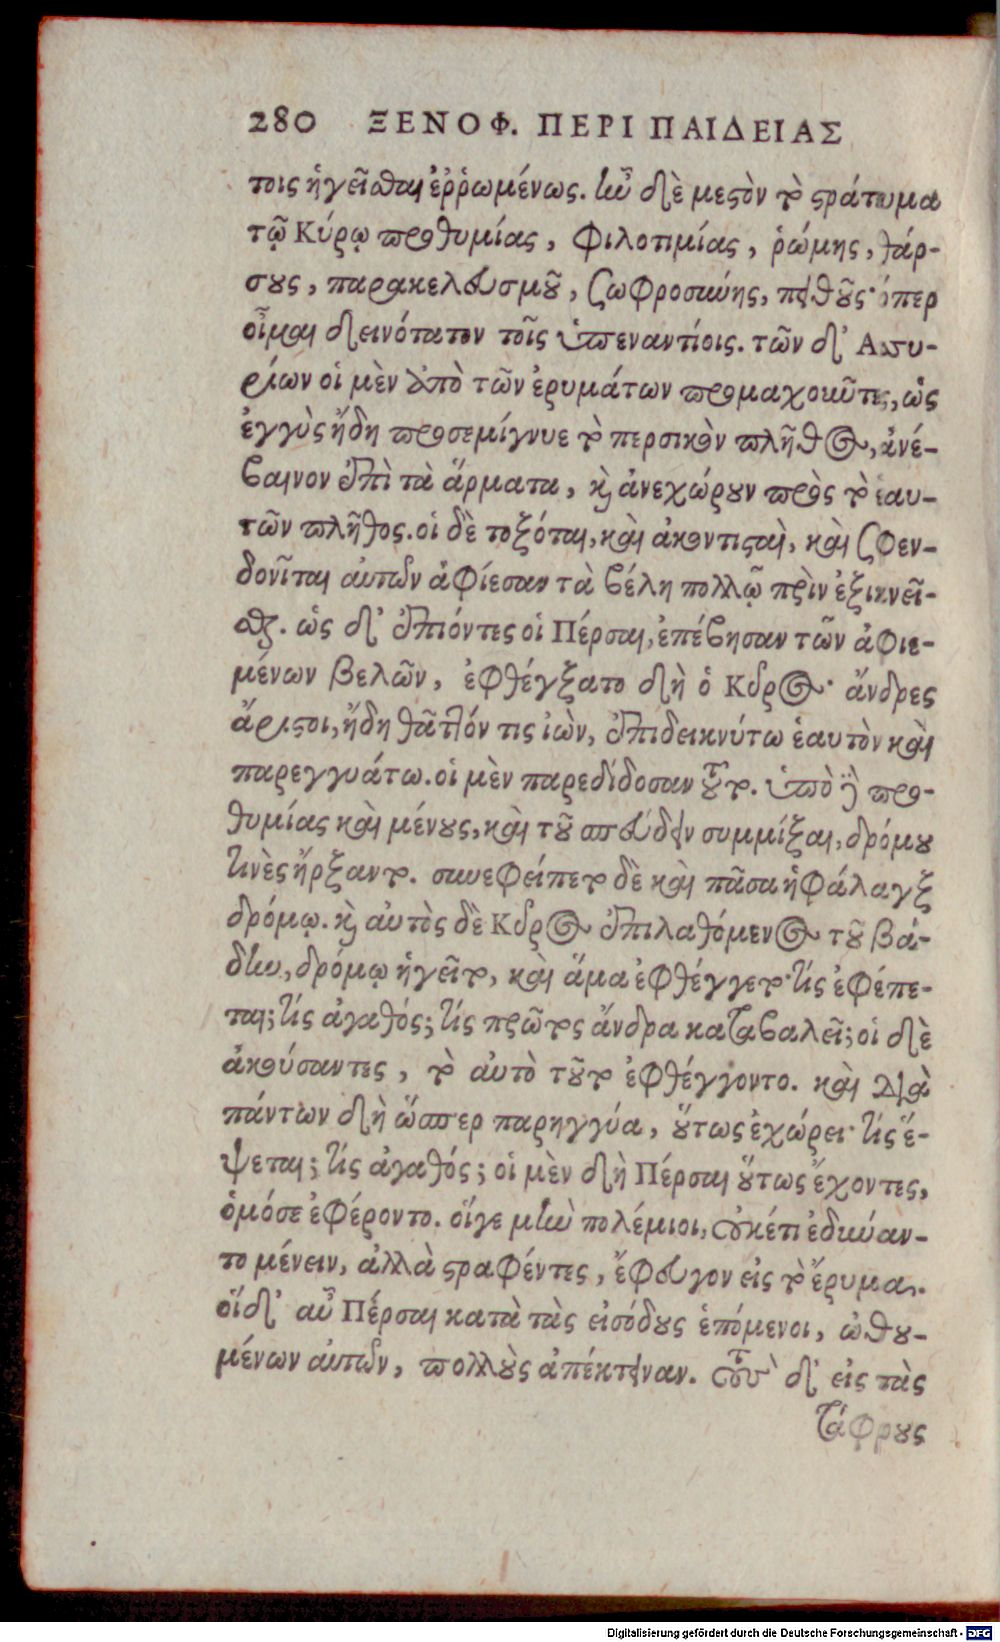 280 ΞΕΝΟΦ. ΠΕΡΙ ΠΑΙΔΕΙΑΣ
τοις ἡγεῖσθαι ἐῤῥωμένως. ἦν δὲ μεστὸν τὸ στράτευμα
τῷ Κύρῳ προθυμίας, φιλοτιμίας, ῥώμης, θάρ-
σους, παρακελευσμοῦ, σωφροσύνης, πειθοῦς· ὅπερ
οἶμαι δεινότατον τοῖς ὑπεναντίοις. τῶν δ' Ασσυ-
ρίων οἱ μὲν ἀπὸ τῶν ἐρυμάτων προμαχοῦντες, ὡς
ἐγγὺς ἤδη προσεμίγνυε τὸ περσικὸν πλῆθος, ἀνέ-
βαινον ἐπὶ τὰ ἅρματα, καὶ ἀνεχώρουν πρὸς τὸ ἑαυ-
τῶν πλῆθος. οἱ δὲ τοξόται, καὶ ἀκοντισταὶ, καὶ σφεν-
δονῖται αὐτῶν ἀφίεσαν τὰ βέλη πολλῷ πρὶν ἐξικνεῖ-
σθαι. ὡς δ' ἐπιόντες οἱ Πέρσαι, ἐπέβησαν τῶν ἀφιε-
μένων βελῶν, ἐφθέγξατο δὴ ὁ Κῦρος· ἄνδρες
ἄριστοι, ἤδη θᾶττόν τις ἰὼν, ἐπιδεικνύτω ἑαυτὸν καὶ
παρεγγυάτω. οἱ μὲν παρεδίδοσαν τοῦτο. ὑπὸ δὲ προ-
θυμίας καὶ μένους, καὶ τοῦ σπεύδειν συμμίξαι, δρόμου
τινὲς ἤρξαντο. συνεφείπετο δὲ καὶ πᾶσα ἡ φάλαγξ
δρόμῳ. καὶ αὐτὸς δὲ Κῦρος ἐπιλαθόμενος τοῦ βά-
δην, δρόμῳ ἡγεῖτο, καὶ ἅμα ἐφθέγγετο· τίς ἐφέπε-
ται; τίς ἀγαθός; τίς πρῶτος ἄνδρα καταβαλεῖ; οἱ δὲ
ἀκούσαντες, τὸ αὐτὸ τοῦτο ἐφθέγγοντο. καὶ διὰ
πάντων δὴ ὥσπερ παρηγγύα, οὕτως ἐχώρει· τίς ἕ-
ψεται; τίς ἀγαθός; οἱ μὲν δὴ Πέρσαι οὕτως ἔχοντες,
ὁμόσε ἐφέροντο. οἵγε μὴν πολέμιοι, οὐκέτι ἐδύναν-
το μένειν, ἀλλὰ στραφέντες, ἔφευγον εἰς τὸ ἔρυμα.
οἵ δ' αὖ Πέρσαι κατὰ τὰς εἰσόδους ἑπόμενοι, ὠθου-
μένων αὐτῶν, πολλοὺς ἀπέκτειναν. τοὺς δ' εἰς τὰς
τάφρους
Digitalisierung gefördert durch die Deutsche Forschungsgemeinschaft - DFG